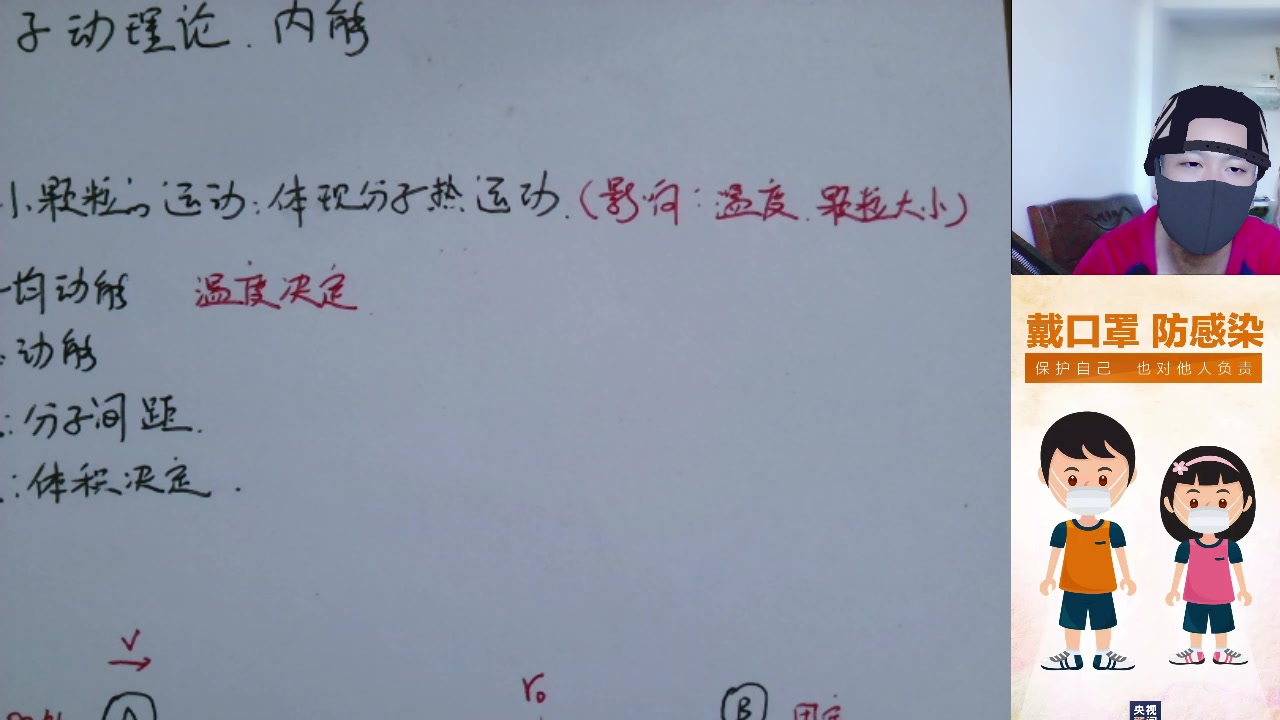 子动理论.内能
小颗粒的运动:体现分子热运动.(影响:温度.颗粒大小)
均动能 温度决定.
动能
:分子间距.
:体积决定.
V
r₀
A
B 固定
戴口罩 防感染
保护自己 也对他人负责
央视